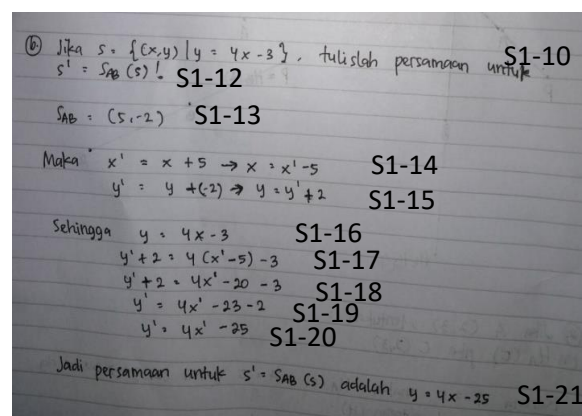 b. Jika s = {(x,y) | y = 4x - 3}, tulislah persamaan untuk S1-10
s' = SAB (s)! S1-12
SAB = (5,-2) S1-13
Maka x' = x + 5 → x = x' - 5 S1-14
y' = y + (-2) → y = y' + 2 S1-15
Sehingga y = 4x - 3 S1-16
y' + 2 = 4 (x' - 5) - 3 S1-17
y' + 2 = 4x' - 20 - 3 S1-18
y' = 4x' - 23 - 2 S1-19
y' = 4x' - 25 S1-20
Jadi persamaan untuk s' = SAB (s) adalah y = 4x - 25 S1-21